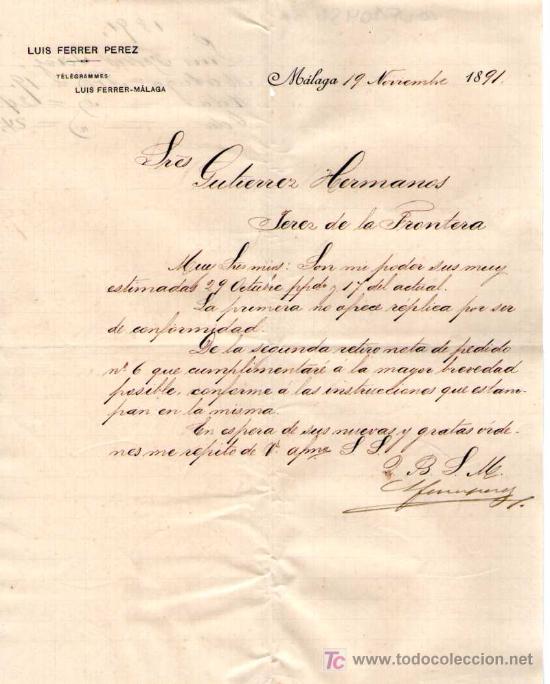 LUIS FERRER PEREZ
TÉLÉGRAMMES
LUIS FERRER-MÁLAGA
Málaga 19 Noviembre 1891.
Sres
Gutierrez Hermanos
Jerez de la Frontera
Muy Sres mios: Son en mi poder sus muy
estimadas 29 Octubre ppdo y 17 del actual.
La primera no ofrece réplica por ser
de conformidad.
De la segunda retiro nota de pedido
nº 6 que cumplimentaré a la mayor brevedad
posible, conforme á las instrucciones que estam-
pan en la misma.
En espera de sus nuevas y gratas orde-
nes me repito de V. apmo S. S.
Q B S M.
TC
www.todocoleccion.net